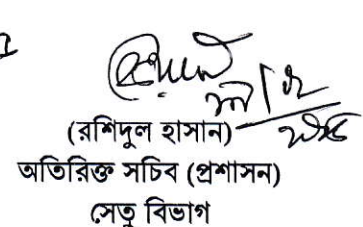 (রশিদুল হাসান)
অতিরিক্ত সচিব (প্রশাসন)
সেতু বিভাগ